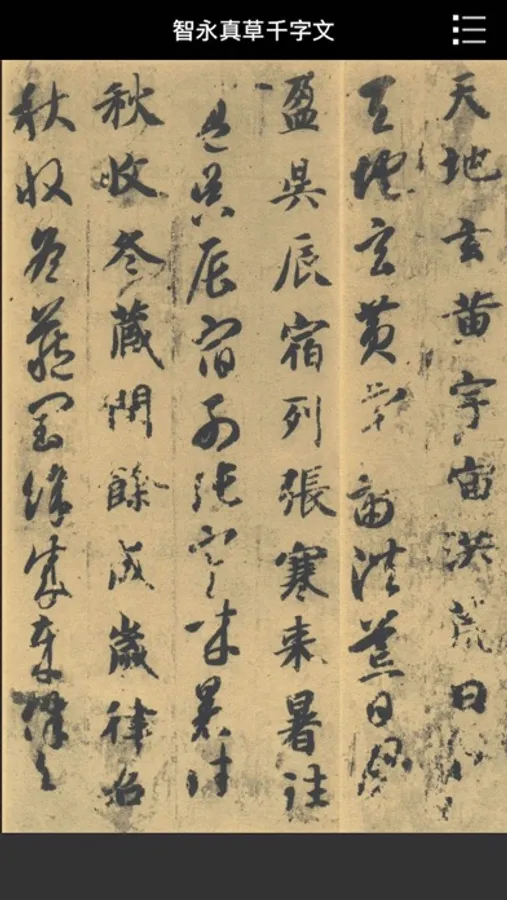 智永真草千字文
天地玄黄宇宙洪荒日月
天地玄黄宇宙洪荒日月
盈昃辰宿列張寒来暑往
盈昃辰宿列張寒来暑往
秋收冬藏閏餘成歲律吕
秋收冬藏閏餘成歲律吕